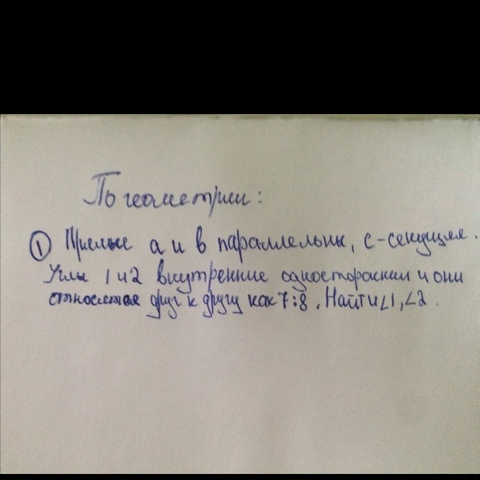 По геометрии:
① Прямые a и в параллельны, с-секущая.
Углы 1 и 2 внутренние односторонии и они
относятся друг к другу как 7:8. Найти∠1,∠2.